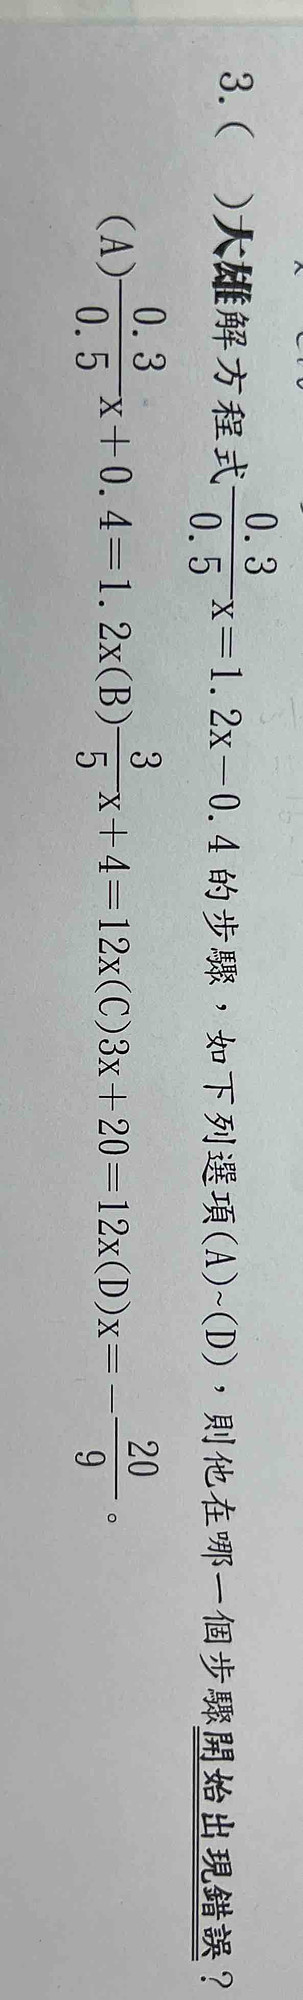 3.( )大雄解方程式\frac{0.3}{0.5}x=1.2x-0.4的步驟，如下列選項(A)~(D)，則他在哪一個步驟開始出現錯誤？
(A)\frac{0.3}{0.5}x+0.4=1.2x(B)\frac{3}{5}x+4=12x(C)3x+20=12x(D)x=-\frac{20}{9}。